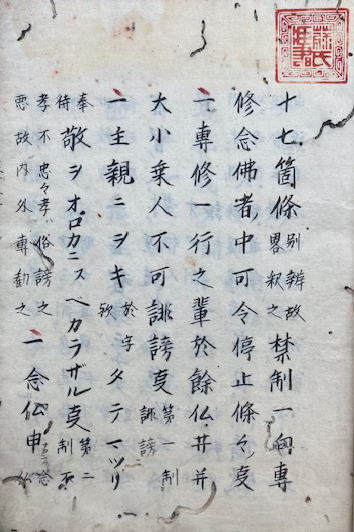 十七箇條別辨故畧釈之禁制一向專
修念佛者中可令停止條々㕝
一專修一行之輩於餘仏并
大小乗人不可誹謗㕝第一制誹謗
一主親ニヲキ於字歟タテマツリ
奉待敬ヲオロカニスベカラザル㕝第二制不
孝不忠々孝俗謗之
悪故内外專勸之一念仏申